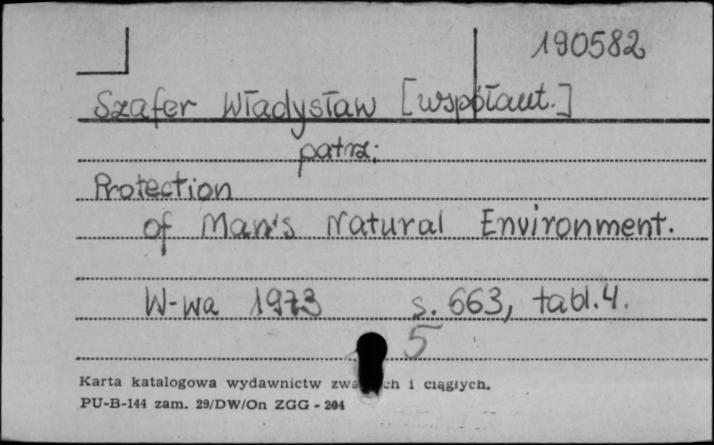 190582
Szafer Władysław [współaut.]
patrz:
Protection
of Man's Natural Environment.
W-wa 1973 s. 663, tabl. 4.
5
Karta katalogowa wydawnictw i ciągłych.
PU-B-144 zam. 29/DW/On ZGG - 204